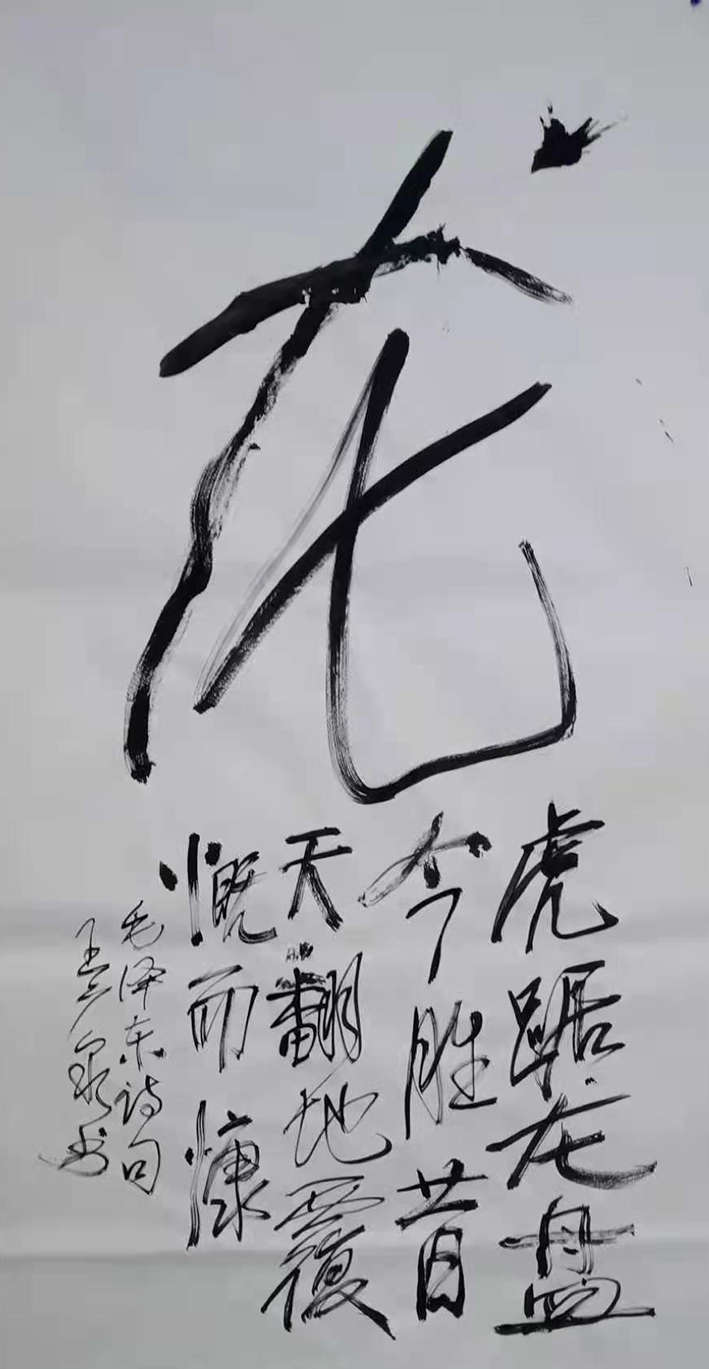 龙
虎踞龙盘
今胜昔
天翻地覆
慨而慷
毛泽东诗句
王泉书